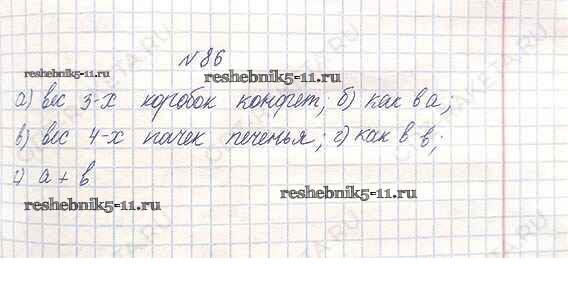 №86
reshebnik5-11.ru reshebnik5-11.ru
а) вес 3-х коробок конфет; б) как в а;
в) вес 4-х пачек печенья; г) как в в;
а + в
reshebnik5-11.ru reshebnik5-11.ru